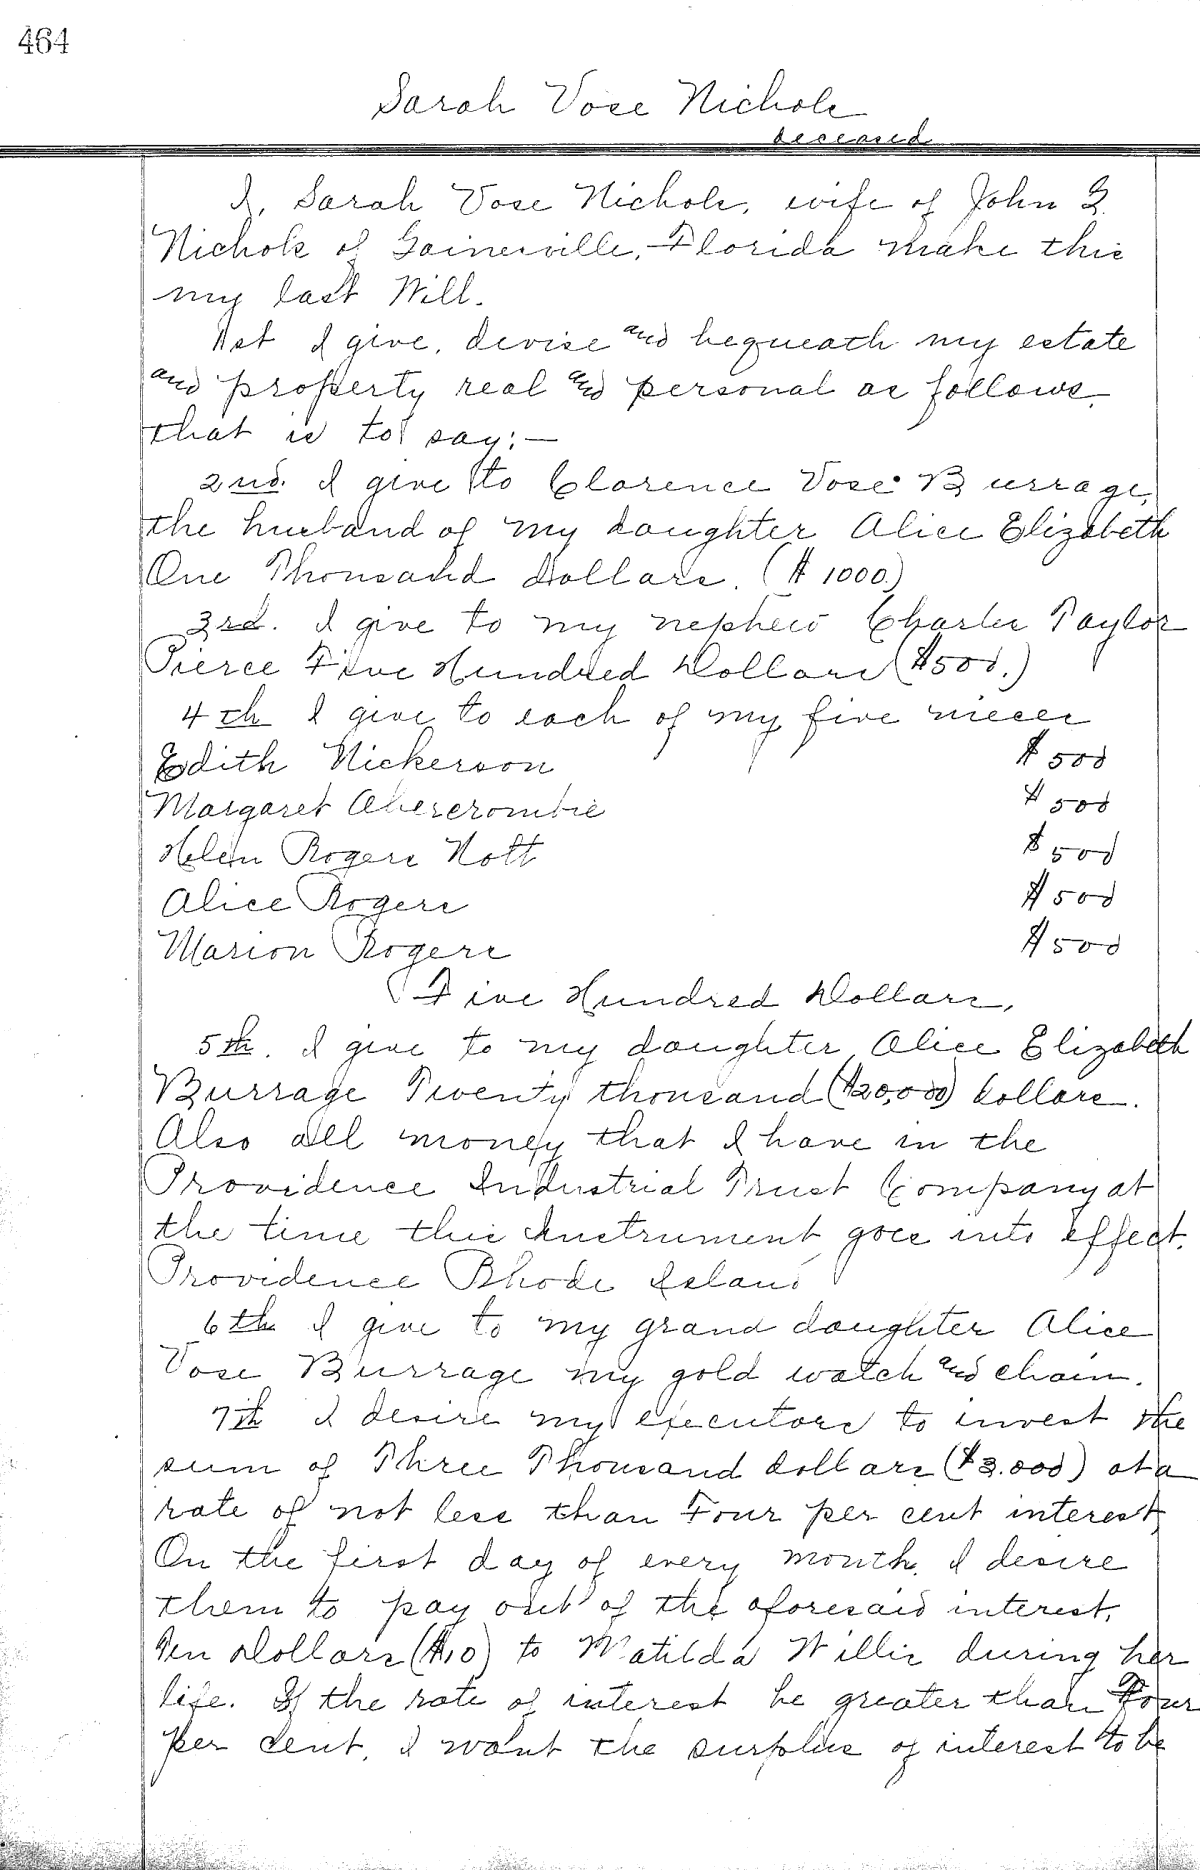 464
Sarah Vose Nichols
deceased
I, Sarah Vose Nichols, wife of John G.
Nichols of Gainesville, Florida make this
my last Will.
1st I give, devise and bequeath my estate
and property real and personal as follows,
that is to say:—
2nd. I give to Clarence Vose Burrage,
the husband of my daughter Alice Elizabeth
One Thousand Dollars. ($1000.)
3rd. I give to my nephew Charles Taylor
Pierce Five Hundred Dollars ($500.)
4th I give to each of my five nieces
Edith Nickerson $500
Margaret Abercrombie $500
Helen Rogers Nott $500
Alice Rogers $500
Marion Rogers $500
Five Hundred Dollars,
5th. I give to my daughter, Alice Elizabeth
Burrage Twenty thousand ($20,000) dollars.
Also all money that I have in the
Providence Industrial Trust Company at
the time this Instrument goes into effect.
Providence Rhode Island
6th I give to my grand daughter Alice
Vose Burrage my gold watch and chain.
7th I desire my executors to invest the
sum of Three Thousand dollars ($3.000) at a
rate of not less than Four per cent interest,
On the first day of every month, I desire
them to pay out of the aforesaid interest,
Ten Dollars ($10) to Matilda Willis during her
life. If the rate of interest be greater than Four
per cent, I want the surplus of interest to be